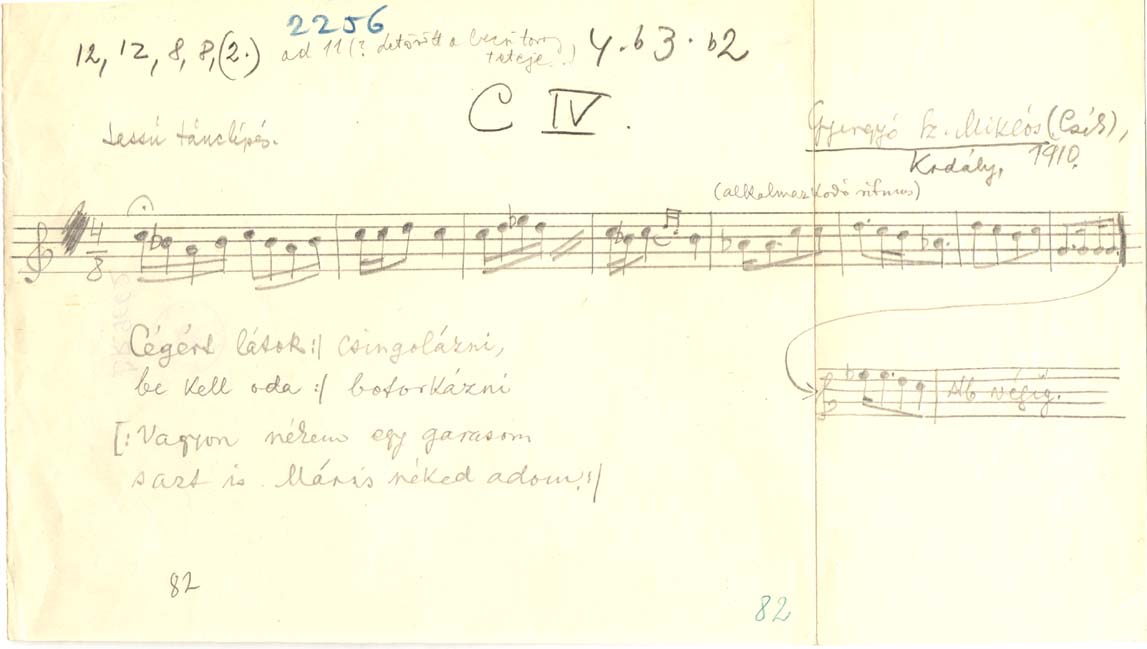 2256
12, 12, 8, 8, (2.) ad 11 (? letörött a
4. b3. b2
C IV.
Lassú tánclépés.
Gyergyó Sz. Miklós (Csík),
Kodály, 1910.
(alkalmazkodó ritmus)
4
8
Cégért látok :| csingolázni,
be kell oda :| botorkázni
[: Vagyon nékem egy garasom
s azt is Máris néked adom. :|
stb végig.
82
82